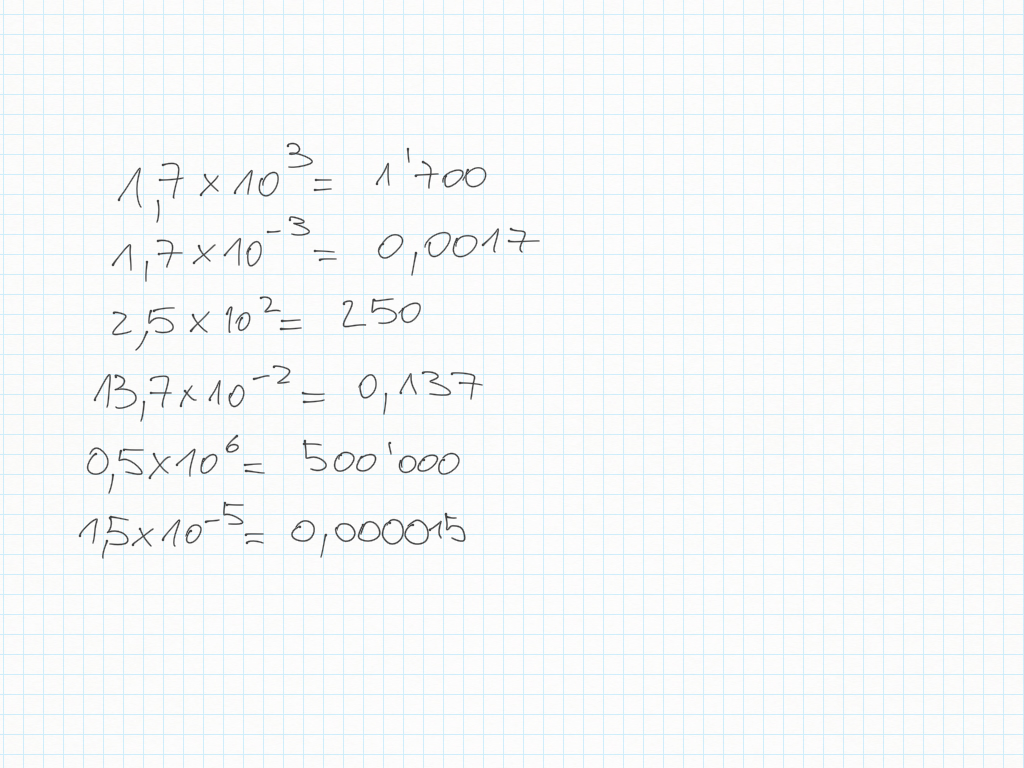 1,7 × 10³ = 1'700
1,7 × 10⁻³ = 0,0017
2,5 × 10² = 250
13,7 × 10⁻² = 0,137
0,5 × 10⁶ = 500'000
1,5 × 10⁻⁵ = 0,000015